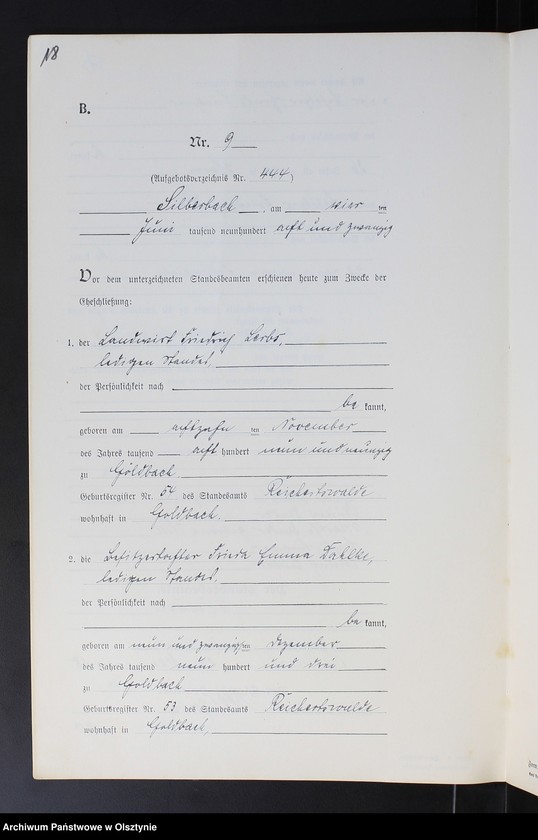 18
B.
Nr. 9
(Aufgebotsverzeichnis Nr. 444)
Silberbach, am vier ten
Juni tausend neunhundert acht und zwanzig
Vor dem unterzeichneten Standesbeamten erschienen heute zum Zwecke der
Eheschließung:
1. der Landwirt Friedrich
ledigen Standes,
der Persönlichkeit nach
be kannt,
geboren am achtzehn ten November
des Jahres tausend acht hundert neun und neunzig
zu Goldbach
Geburtsregister Nr. 54 des Standesamts Reichertswalde
wohnhaft in Goldbach.
2. die Besitzertochter Frieda Emma Dahlke,
ledigen Standes,
der Persönlichkeit nach
be kannt,
geboren am neun und zwanzigsten Dezember
des Jahres tausend neun hundert und drei
zu Goldbach
Geburtsregister Nr. 53 des Standesamts Reichertswalde
wohnhaft in Goldbach,
Archiwum Państwowe w Olsztynie